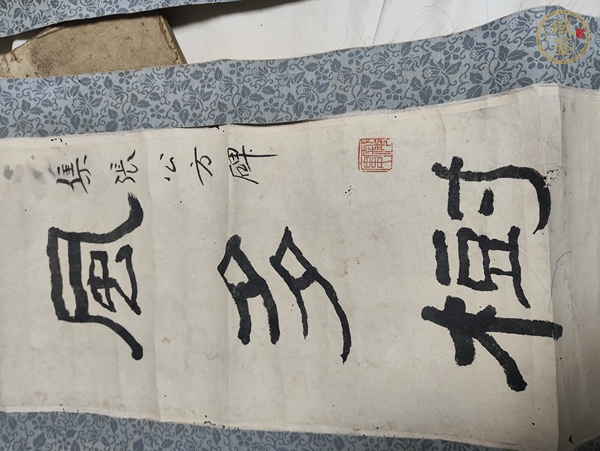 集張公方碑
風多樹